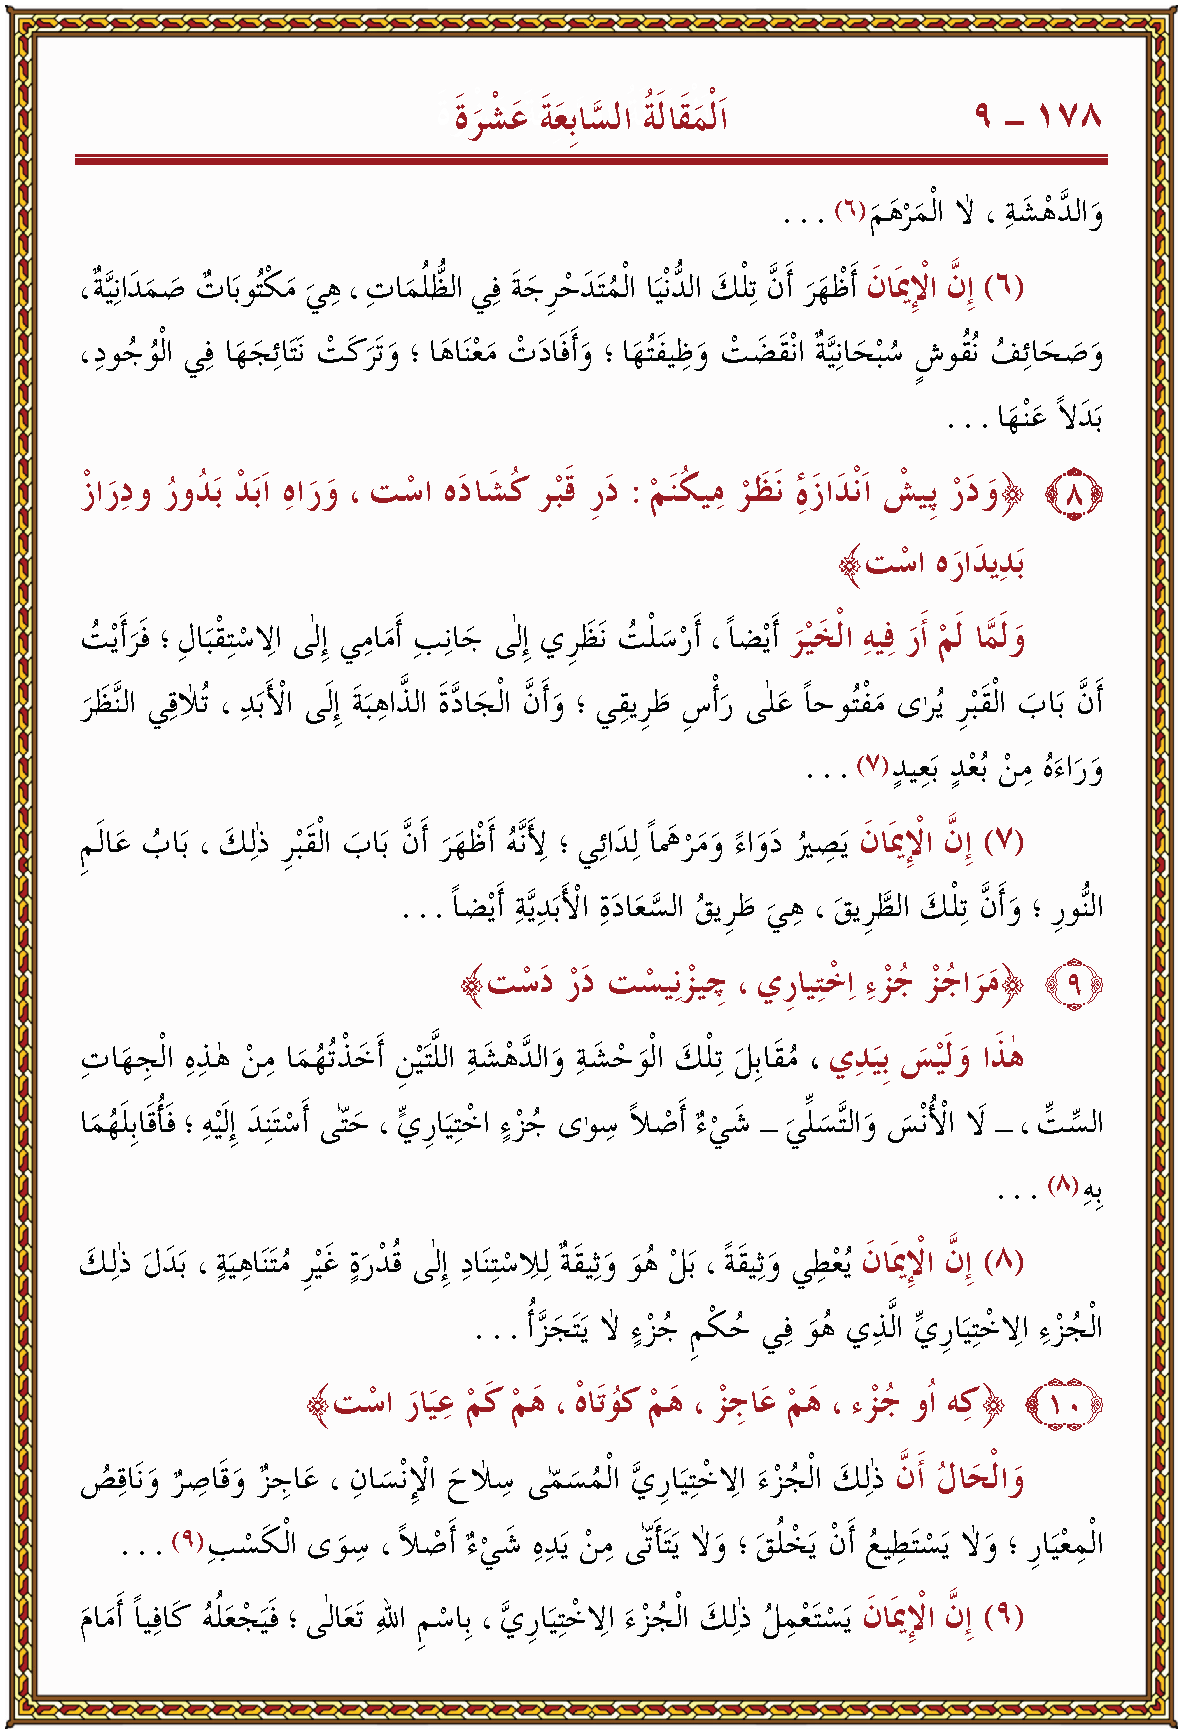 ١٧٨ – ٩ اَلْمَقَالَةُ السَّابِعَةَ عَشْرَةَ
وَالدَّهْشَةِ ، لاٰ الْمَرْهَمَ(٦) . . .
(٦) إِنَّ الْإِيمَانَ أَظْهَرَ أَنَّ تِلْكَ الدُّنْيَا الْمُتَدَحْرِجَةَ فِي الظُّلُمَاتِ ، هِيَ مَكْتُوبَاتٌ صَمَدَانِيَّةٌ ،
وَصَحَائِفُ نُقُوشٍ سُبْحَانِيَّةٌ انْقَضَتْ وَظِيفَتُهَا ؛ وَأَفَادَتْ مَعْنَاهَا ؛ وَتَرَكَتْ نَتَائِجَهَا فِي الْوُجُودِ ،
بَدَلاً عَنْهَا . . .
﴿٨﴾ ﴿وَدَرْ پِيشْ اَنْدَازَهِٔ نَظَرْ مِيكُنَمْ : دَرِ قَبْر كُشَادَه اسْت ، وَرَاهِ اَبَدْ بَدُورُ ودِرَازْ
بَدِيدَارَه اسْت﴾
وَلَمَّا لَمْ أَرَ فِيهِ الْخَيْرَ أَيْضاً ، أَرْسَلْتُ نَظَرِي إِلٰى جَانِبِ أَمَامِي إِلٰى الِاسْتِقْبَالِ ؛ فَرَأَيْتُ
أَنَّ بَابَ الْقَبْرِ يُرٰى مَفْتُوحاً عَلٰى رَأْسِ طَرِيقِي ؛ وَأَنَّ الْجَادَّةَ الذَّاهِبَةَ إِلَى الْأَبَدِ ، تُلاٰقِي النَّظَرَ
وَرَاءَهُ مِنْ بُعْدٍ بَعِيدٍ(٧) . . .
(٧) إِنَّ الْإِيمَانَ يَصِيرُ دَوَاءً وَمَرْهَماً لِدَائِي ؛ لِأَنَّهُ أَظْهَرَ أَنَّ بَابَ الْقَبْرِ ذٰلِكَ ، بَابُ عَالَمِ
النُّورِ ؛ وَأَنَّ تِلْكَ الطَّرِيقَ ، هِيَ طَرِيقُ السَّعَادَةِ الْأَبَدِيَّةِ أَيْضاً . . .
﴿٩﴾ ﴿مَرَاجُزْ جُزْءِ اِخْتِيَارِي ، چِيزْنِيسْت دَرْ دَسْت﴾
هٰذَا وَلَيْسَ بِيَدِي ، مُقَابِلَ تِلْكَ الْوَحْشَةِ وَالدَّهْشَةِ اللَّتَيْنِ أَخَذْتُهُمَا مِنْ هٰذِهِ الْجِهَاتِ
السِّتِّ ، – لَا الْأُنْسَ وَالتَّسَلِّيَ – شَيْءٌ أَصْلاً سِوٰى جُزْءٍ اخْتِيَارِيٍّ ، حَتّٰى أَسْتَنِدَ إِلَيْهِ ؛ فَأُقَابِلَهُمَا
بِهِ(٨) . . .
(٨) إِنَّ الْإِيمَانَ يُعْطِي وَثِيقَةً ، بَلْ هُوَ وَثِيقَةٌ لِلِاسْتِنَادِ إِلٰى قُدْرَةٍ غَيْرِ مُتَنَاهِيَةٍ ، بَدَلَ ذٰلِكَ
الْجُزْءِ الِاخْتِيَارِيِّ الَّذِي هُوَ فِي حُكْمِ جُزْءٍ لاٰ يَتَجَزَّأُ . . .
﴿١٠﴾ ﴿كِه اُو جُزْء ، هَمْ عَاجِزْ ، هَمْ كُوتَاهْ ، هَمْ كَمْ عِيَارَ اسْت﴾
وَالْحَالُ اَنَّ ذٰلِكَ الْجُزْءَ الِاخْتِيَارِيَّ الْمُسَمّٰى سِلاٰحَ الْإِنْسَانِ ، عَاجِزٌ وَقَاصِرٌ وَنَاقِصُ
الْمِعْيَارِ ؛ وَلاٰ يَسْتَطِيعُ أَنْ يَخْلُقَ ؛ وَلاٰ يَتَأَتّٰى مِنْ يَدِهِ شَيْءٌ أَصْلاً ، سِوَى الْكَسْبِ(٩) . . .
(٩) إِنَّ الْإِيمَانَ يَسْتَعْمِلُ ذٰلِكَ الْجُزْءَ الِاخْتِيَارِيَّ ، بِاسْمِ اللهِ تَعَالٰى ؛ فَيَجْعَلُهُ كَافِياً أَمَامَ